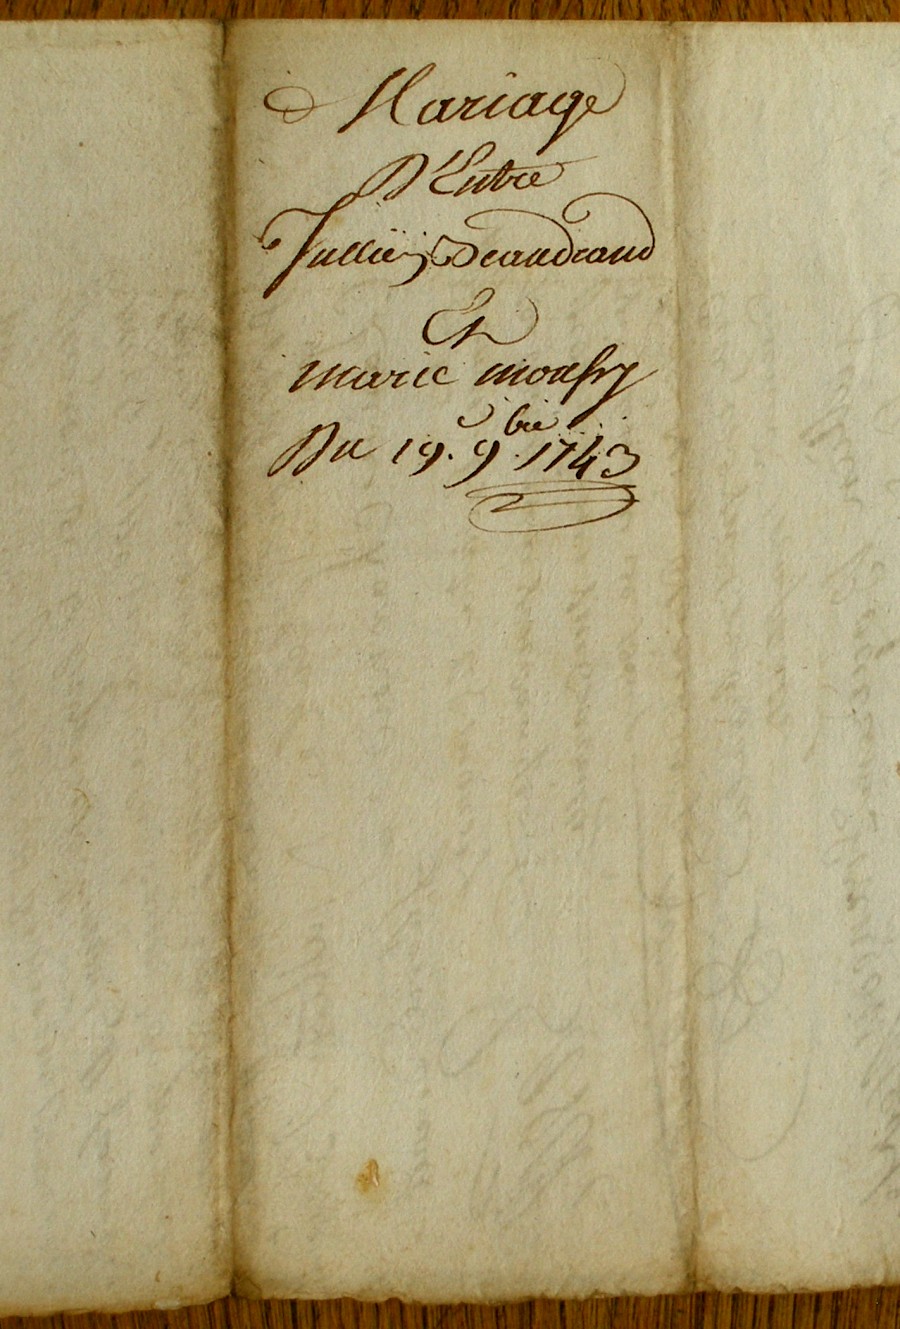 Mariage
D'Entre
Jullien Beaudeaud
Et
marie monfry
Du 19.e 9.bre 1743